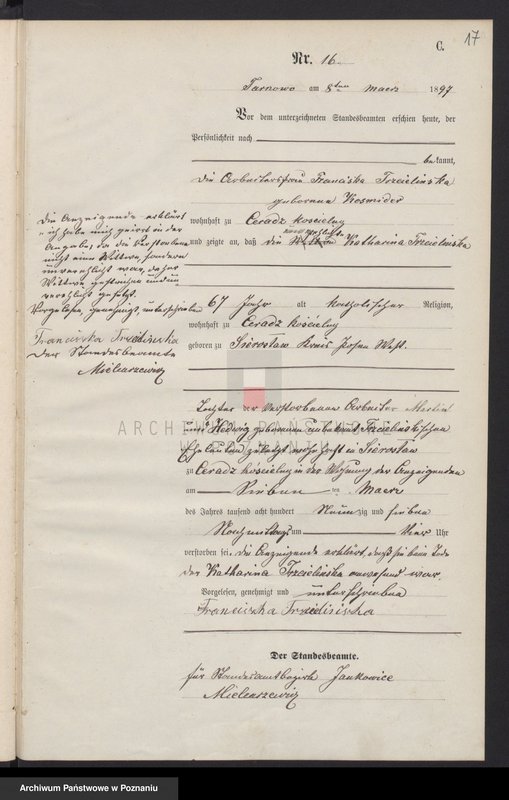 17
C.
Nr. 16
Tarnowo am 8ten Maerz 1897
Vor dem unterzeichneten Standesbeamten erschien heute, der
Persönlichkeit nach
bekannt,
die Arbeiterfrau Franciska Trzcielinska
geborene Kosmider
wohnhaft zu Ceradz koscielny
und zeigte an, daß die Katharina Trzcielinska
67 Jahr alt katholischer Religion,
wohnhaft zu Ceradz kościelny
geboren zu Sierosław Kreis Posen West.
Tochter der verstorbenen Arbeiter Martin
und Hedwig geborenen unbekannt Trzcielinskischen
Eheleuten zuletzt wohnhaft in Sierosław
zu Ceradz koscielny in der Wohnung der Anzeigenden
am Sieben ten Maerz
des Jahres tausend acht hundert Neunzig und sieben
Nachmittags um Vier Uhr
verstorben sei. die Anzeigende erklärt, daß sie beim Tode
der Katharina Trzcielinska anwesend war.
Vorgelesen, genehmigt und unterschrieben
Franciszka Trzcilińska
Der Standesbeamte.
für Standesamtsbezirk Jankowice
Mielearzewicz
Die Anzeigende erklärt
ich habe mich geirrt in der
Angabe, da die Verstorbene
nicht eine Wittwe, sondern
unverehelicht war, daher
Wittwe gestrichen und un
verehelicht gesetzt.
Vorgelesen, genehmigt, unterschrieben
Franciszka Trzcilińska
Der Standesbeamte
Mielearzewicz
ARCHIWUM PAŃSTWOWE
W POZNANIU
Archiwum Państwowe w Poznaniu